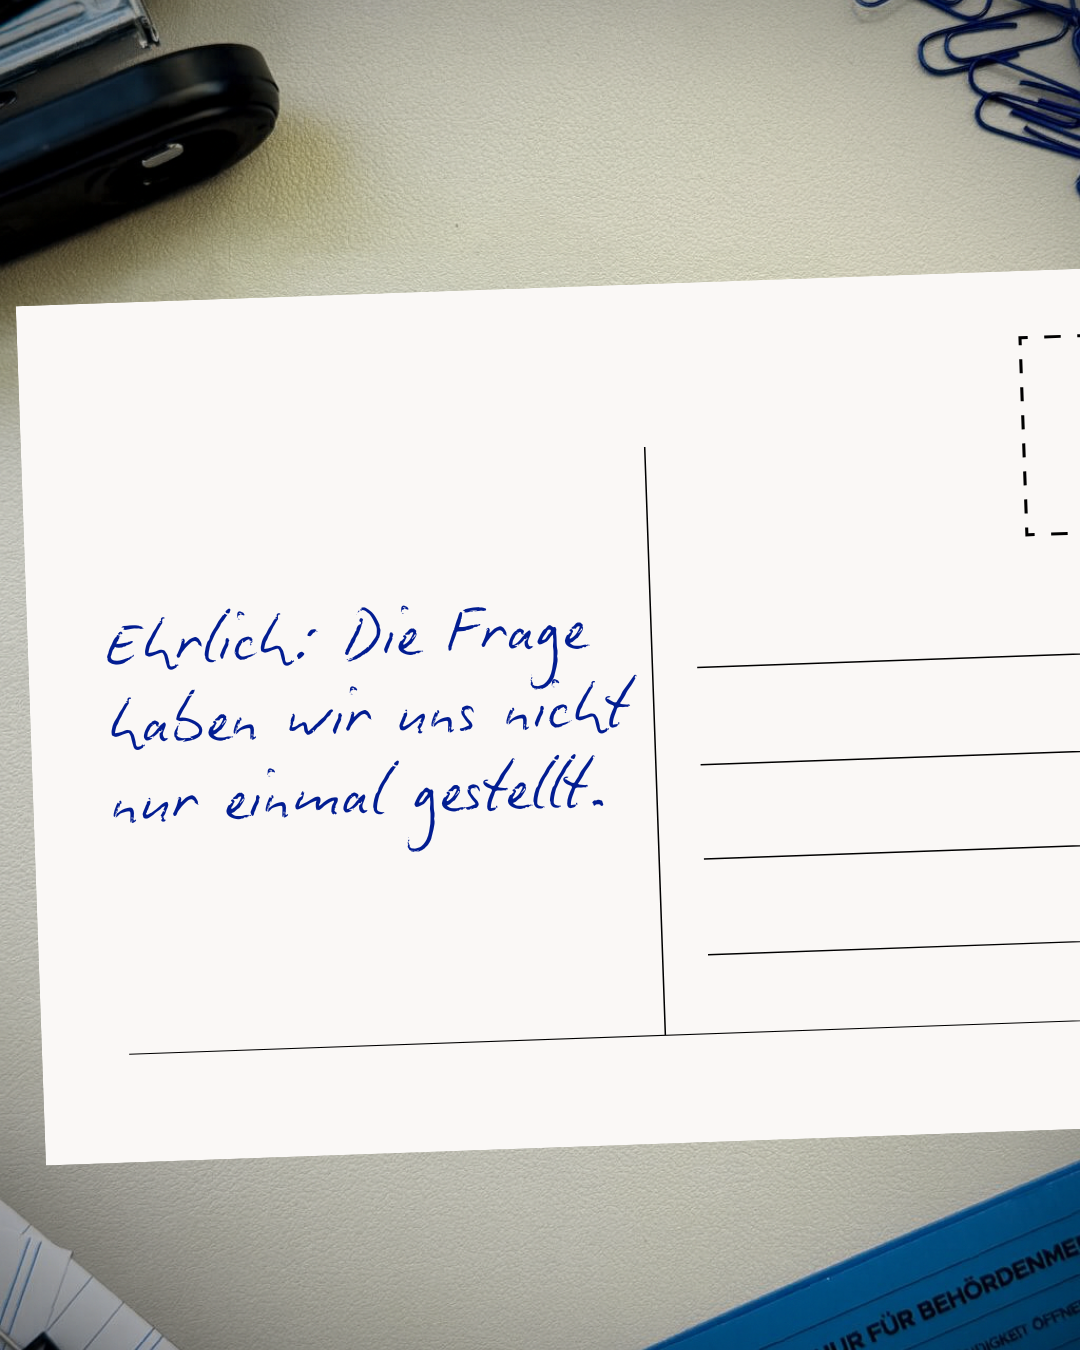 Ehrlich: Die Frage
haben wir uns nicht
nur einmal gestellt.
NUR FÜR BEHÖRDENME
ÖFFNE